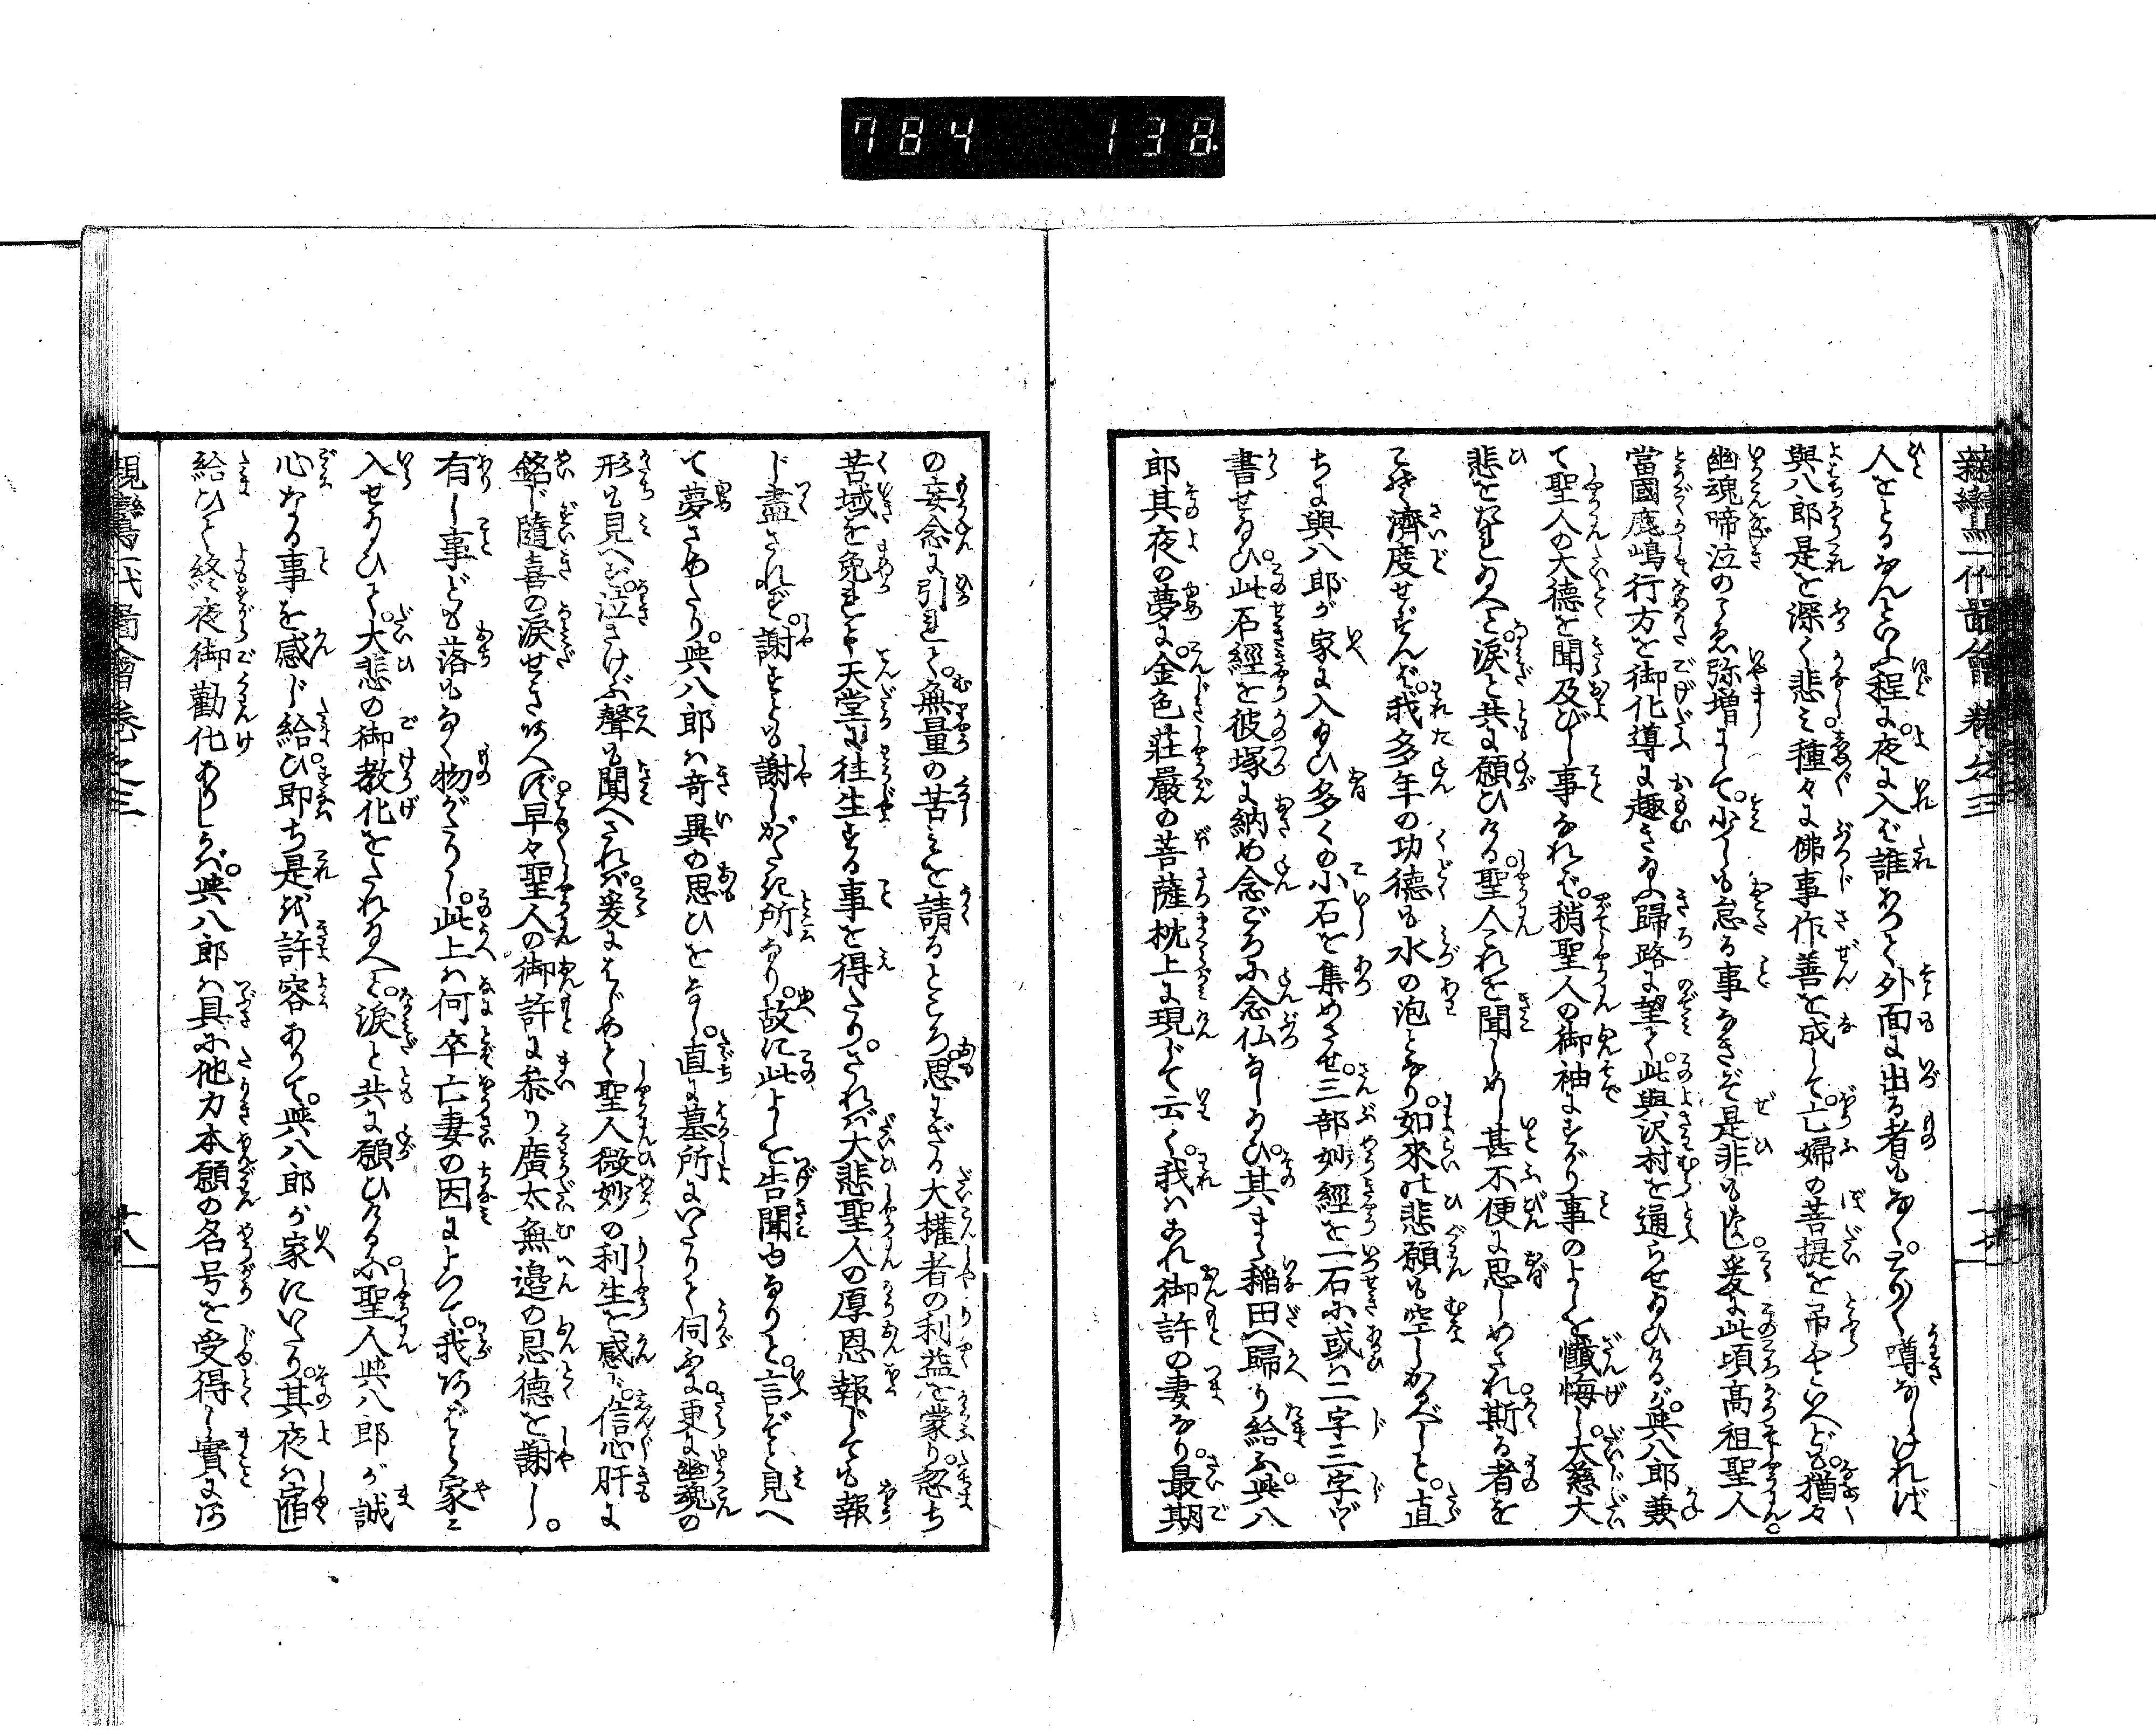 784 138
親鸞聖人一代図會巻之三
人をとるなんといふ程に。夜に入ば誰あつて外面に出る者もなく。とかく噂なしければ
與八郎是を深く悲み。種々に佛事作善を成して。亡婦の菩提を吊ふといへども。猶々
幽魂啼泣のこゑ弥増にして。少しも怠る事なきぞ是非もなし。爰に此頃高祖聖人。
當國鹿嶋行方を御化導に趣き給ふ歸路に望て。此與沢村を通らせ給ひけるが。與八郎兼
て聖人の大徳を聞及びし事なれば。稍聖人の御袖にすがり事のよしを懺悔し。大慈大
悲をたれ給へと。涙と共に願ひける。聖人これを聞しめし甚不便に思しめされ。斯る者を
こそ済度せずんば。我多年の功徳も水の泡となり。如来の悲願も空しかるべしと。直
ちに與八郎が家に入給ひ多くの小石を集めさせ。三部妙經を一石に或は二字三字づゝ
書せ給ひ。此石經を彼塚に納め念ごろに念仏なし給ひ。其まゝ稲田へ歸り給ふ。與八
郎其夜の夢に。金色荘嚴の菩薩枕上に現じて云く。我はあれ御許の妻なり。最期
の妄念に引れて。無量の苦しみを請るところ。思はざる大權者の利益を蒙り。忽ち
苦域を免れて天堂に往生する事を得たり。されば大悲聖人の厚恩報じても報
じ盡されず。謝すとも謝しがたき所なり。故に此よしを告聞ゆなりと。言ぞと見へ
て夢さめたり。與八郎は奇異の思ひをなし。直に墓所にいたりて伺ふに。更に幽魂の
形も見へず。泣さけぶ聲も聞へざれば。爰にはじめて聖人微妙の利生を感じ。信心肝に
銘じ隨喜の涙せきあへず。早々聖人の御許に参り廣太無邉の恩徳を謝し。
有し事ども落もなく物がたりし。此上は何卒亡妻の因によつて。我あばら家に
入せ給ひて。大悲の御教化をたれ給へと。涙と共に願ひけるに。聖人與八郎が誠
心なる事を感じ給ひ。即ち是を許容ありて。與八郎が家にいたり。其夜は宿し
給ひて終夜御勸化ありしかば。與八郎は具に他力本願の名号を受得し。實にあ
親鸞聖人一代図會巻之三
十八